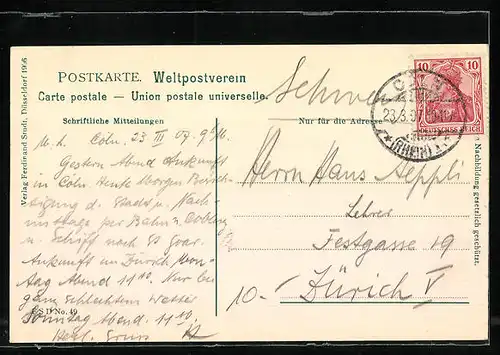 POSTKARTE. Weltpostverein
Carte postale — Union postale universelle
Schriftliche Mitteilungen
Nur für die Adresse
Cöln, 23 III 07. 9
Gestern Abend Ankunft
in Cöln. Heute Morgen
tigung d. Stadt u. Nach-
mittags per Bahn
u. Schiff nach St Goar.
Ankunft in Zürich
tag Abend 11 10. Nur bei
schlechtem Wetter
Sonntag Abend. 11.10.
Herzl. Gruss
F S D No. 49
Herrn Hans Aeppli
Lehrer
Festgasse 19
10.- Zürich V
Verlag Ferdinand Stude, Düsseldorf 1906
Nachbildung gesetzlich geschützt.
10 10
DEUTSCHES REICH
CÖLN
23.3.07
(RHEIN)